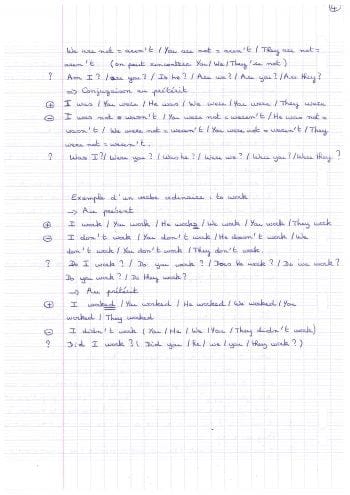 4
We are not = aren't / You are not = aren't / They are not =
aren't (on peut rencontrer You / We / They're not)
? Am I ? / Are you ? / Is he ? / Are we ? / Are you ? / Are they ?
→ Conjugaison au prétérit
+ I was / You were / He was / We were / You were / They were
- I was not = wasn't / You were not = weren't / He was not =
wasn't / We were not = weren't / You were not = weren't / They
were not = weren't.
? Was I ? / Were you ? / Was he ? / Were we ? / Were you ? / Were they ?
Exemple d'un verbe ordinaire : to work
→ Au présent
+ I work / You work / He works / We work / You work / They work
- I don't work / You don't work / He doesn't work / We
don't work / You don't work / They don't work.
? Do I work ? / Do you work ? / Does he work ? / Do we work ?
Do you work ? / Do they work ?
→ Au prétérit
+ I worked / You worked / He worked / We worked / You
worked / They worked
- I didn't work (You / He / We / You / They didn't work)
? Did I work ? ( Did you / he / we / you / they work ? )